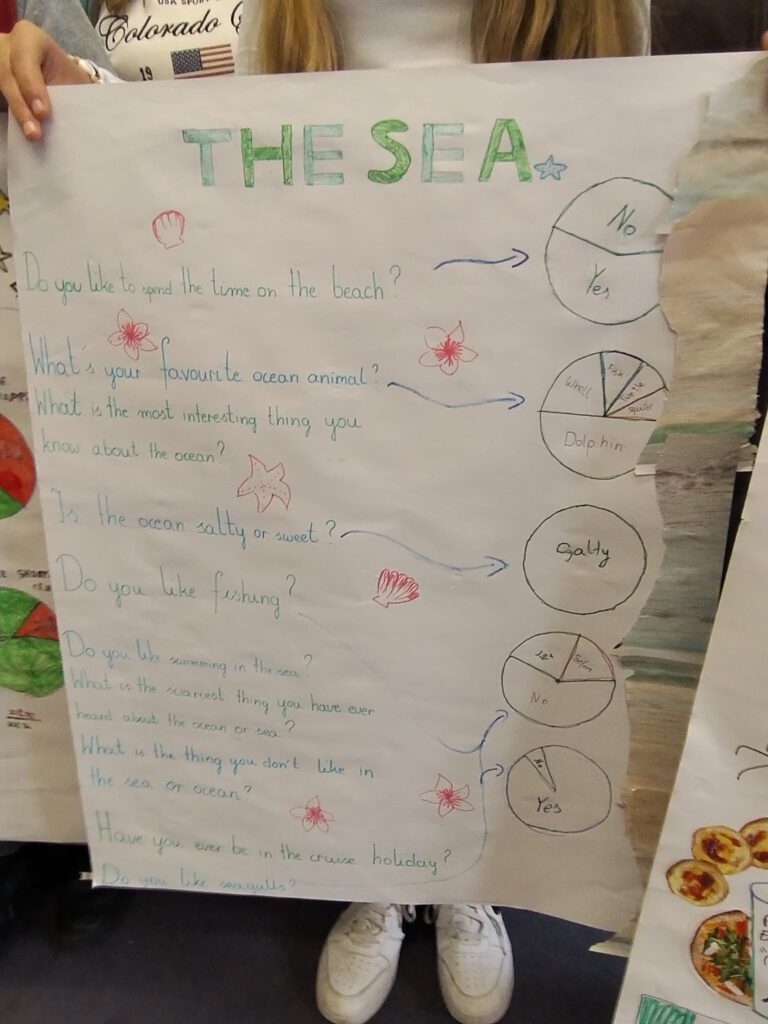 USA SPORT
Colorado
19
THE SEA
No
Yes
Do you like to spend the time on the beach?
What's your favourite ocean animal?
Whall
Fish
Turtle
Squid
Dolphin
What is the most interesting thing you
know about the ocean?
Is the ocean salty or sweet?
Salty
Do you like fishing?
Before
No
Do you like swimming in the sea?
What is the sciarest thing you have ever
heard about the ocean or sea?
What is the thing you don't like in
the sea or ocean?
No
Yes
Have you ever be in the cruise holiday?
Do you like seagulls?